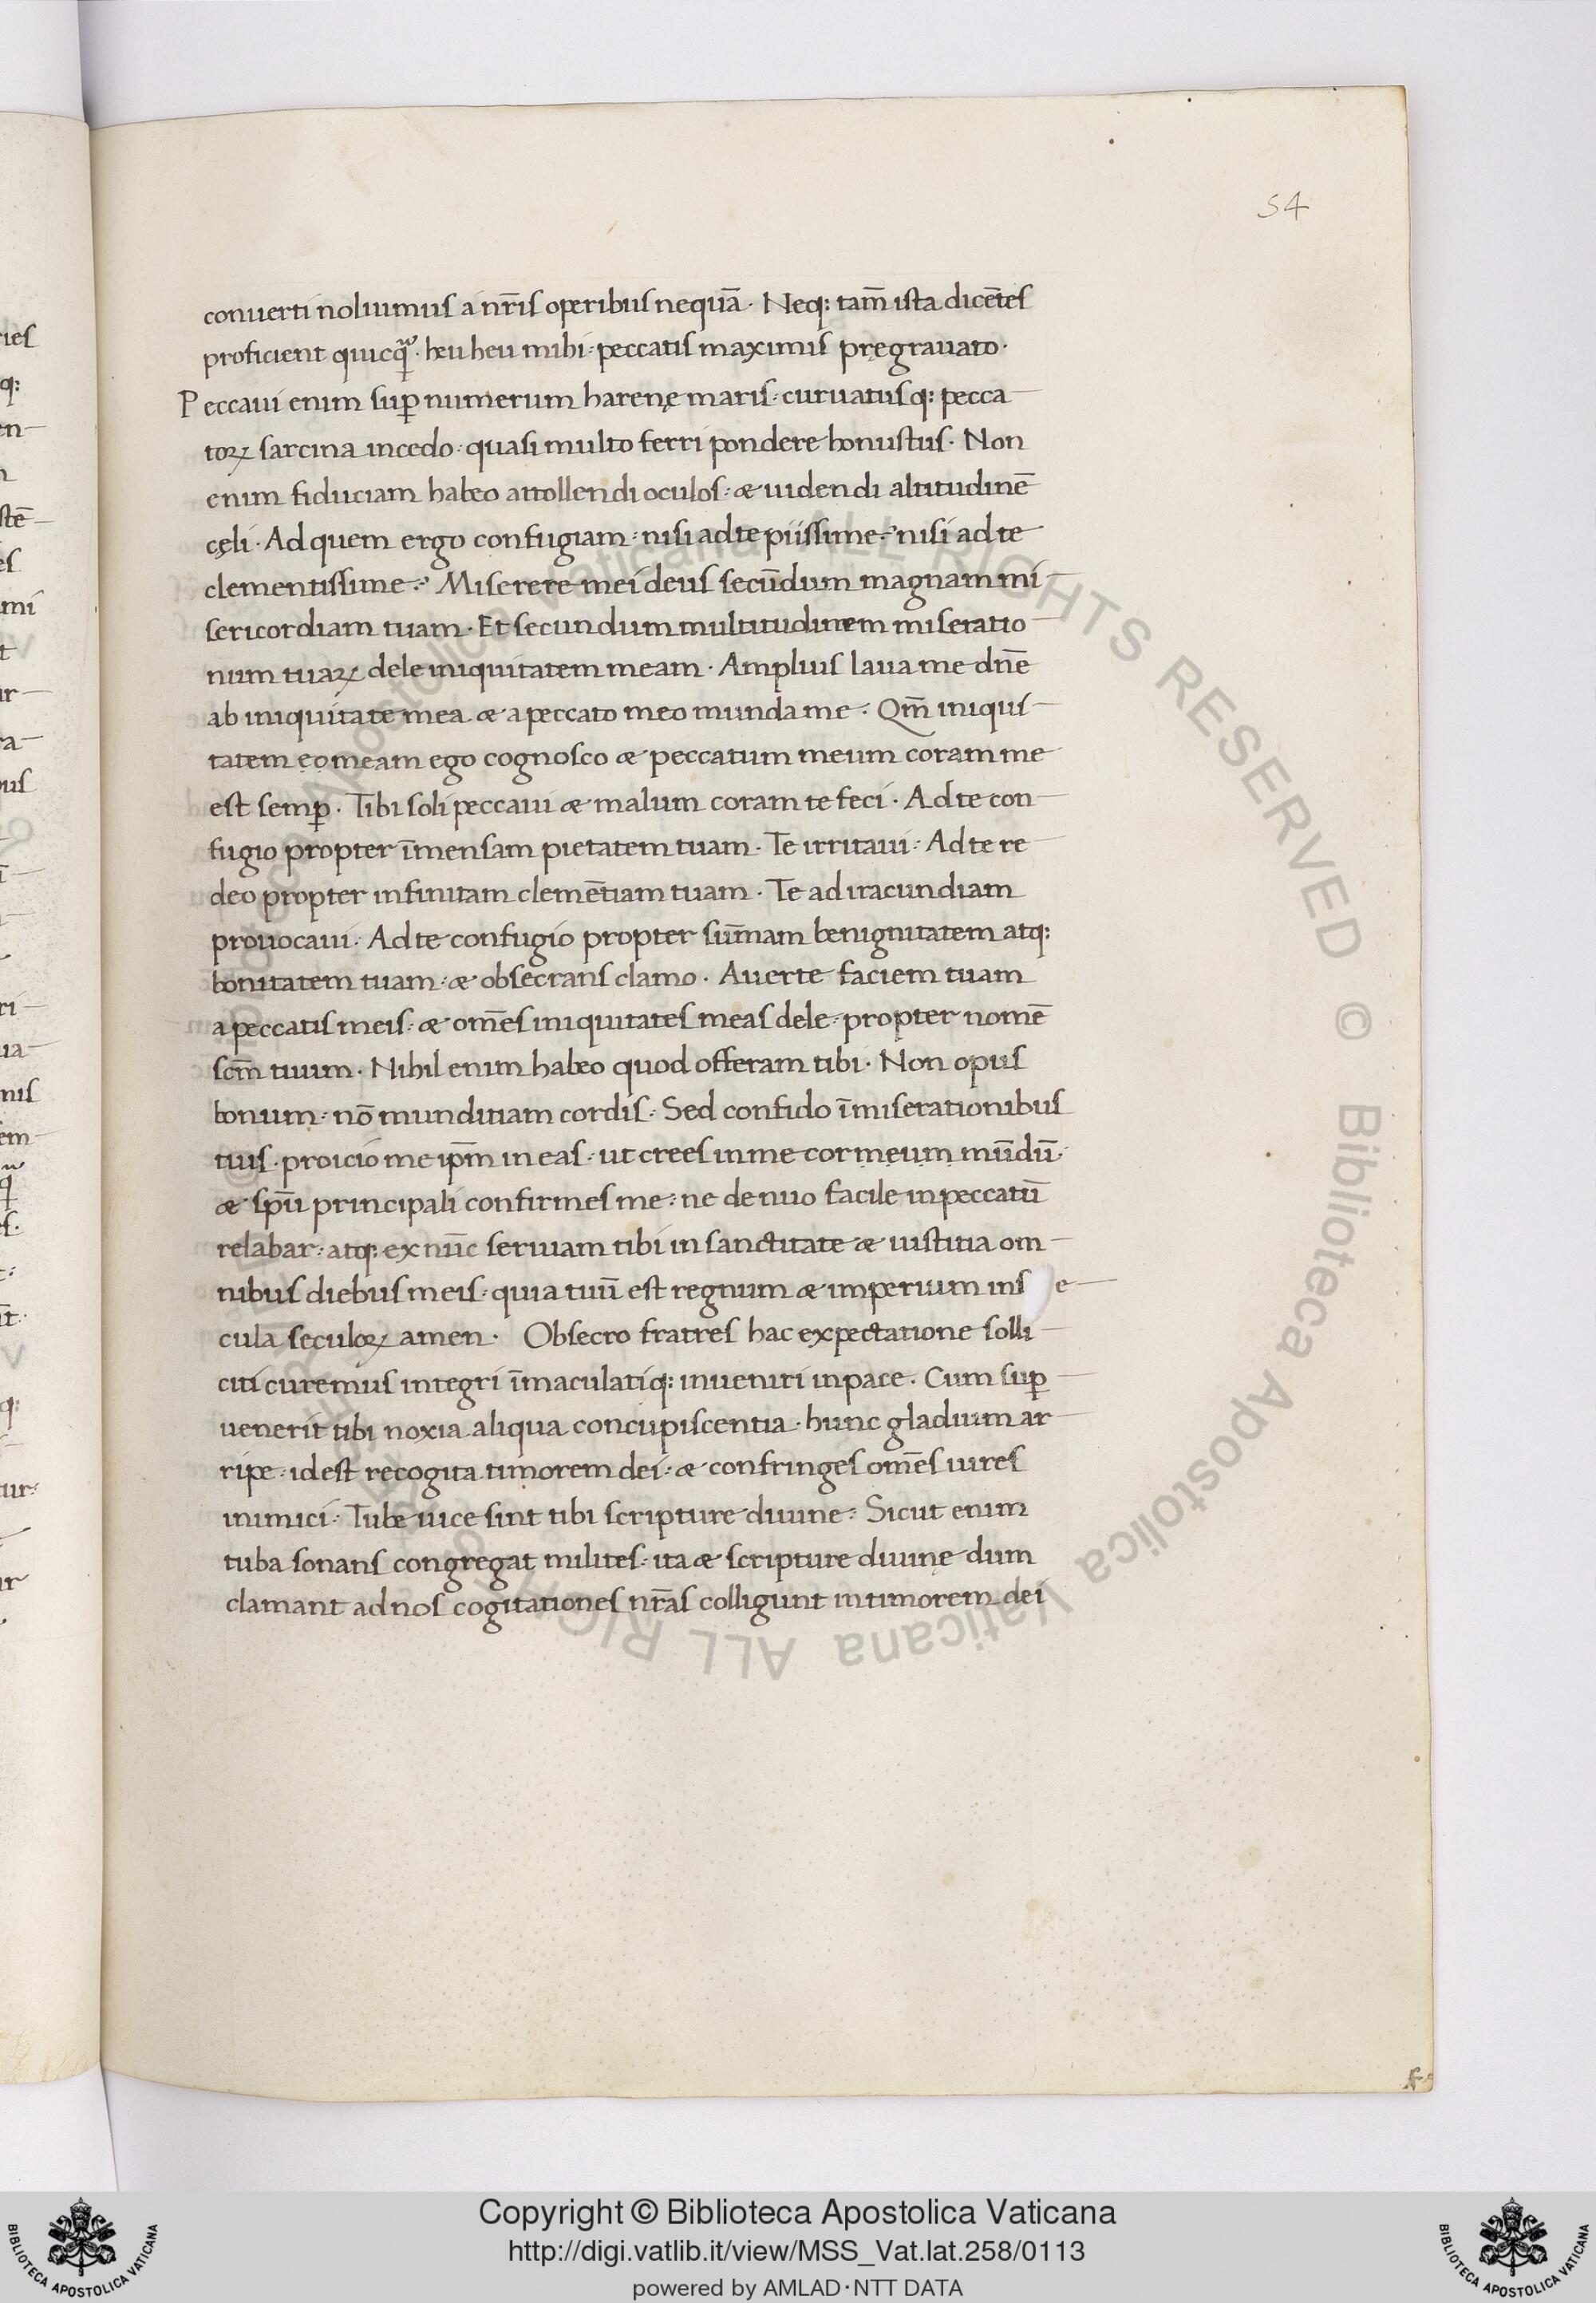 54
conuerti noluimus a nr̄is operibus nequā. Neq: tam̄ ista dicētes
proficient quicq̄. heu heu mihi: peccatis maximis pręgrauato.
Peccaui enim suꝑ numerum harenę maris: curuatusq: pecca
toꝝ sarcina incedo: quasi multo ferri pondere honustus. Non
enim fiduciam habeo attollendi oculos: & uidendi altitudinē
cęli. Ad quem ergo confugiam: nisi ad te piissime: nisi ad te
clementissime: Miserere mei deus secūdum magnam mi
sericordiam tuam. Et secundum multitudinem miseratio
num tuaꝝ dele iniquitatem meam. Amplius laua me dn̄e
ab iniquitate mea & a peccato meo munda me: Qm̄ iniqui
tatem eo meam ego cognosco & peccatum meum coram me
est semꝑ. Tibi soli peccaui & malum coram te feci. Ad te con
fugio propter īmensam pietatem tuam. Te irritaui: Ad te re
deo propter infinitam clemētiam tuam. Te ad iracundiam
prouocaui. Ad te confugio propter sūmam benignitatem atq:
bonitatem tuam: & obsecrans clamo. Auerte faciem tuam
a peccatis meis: & om̄es iniquitates meas dele: propter nomē
scm̄ tuum. Nihil enim habeo quod offeram tibi. Non opus
bonum: nō munditiam cordis: Sed confido ī miserationibus
tuis. proicio me ip̄m in eas: ut crees in me cor meum mūdū.
& sp̄u principali confirmes me: ne denuo facile in peccatū
relabar: atq: ex nūc seruiam tibi in sanctitate & iustitia om
nibus diebus meis: quia tuū est regnum & imperium in s e
cula seculoꝝ amen. Obsecro fratres hac expectatione solli
citi curemus integri īmaculatiq: inueniri in pace. Cum suꝑ
uenerit tibi noxia aliqua concupiscentia. hunc gladium ar
ripe: idest recogita timorem dei: & confringes om̄es uires
inimici: Tube uice sint tibi scripture diuine: Sicut enim
tuba sonans congregat milites: ita & scripture diuinę dum
clamant ad nos cogitationes nr̄as colligunt in timorem dei
Copyright © Biblioteca Apostolica Vaticana
http://digi.vatlib.it/view/MSS_Vat.lat.258/0113
powered by AMLAD·NTT DATA